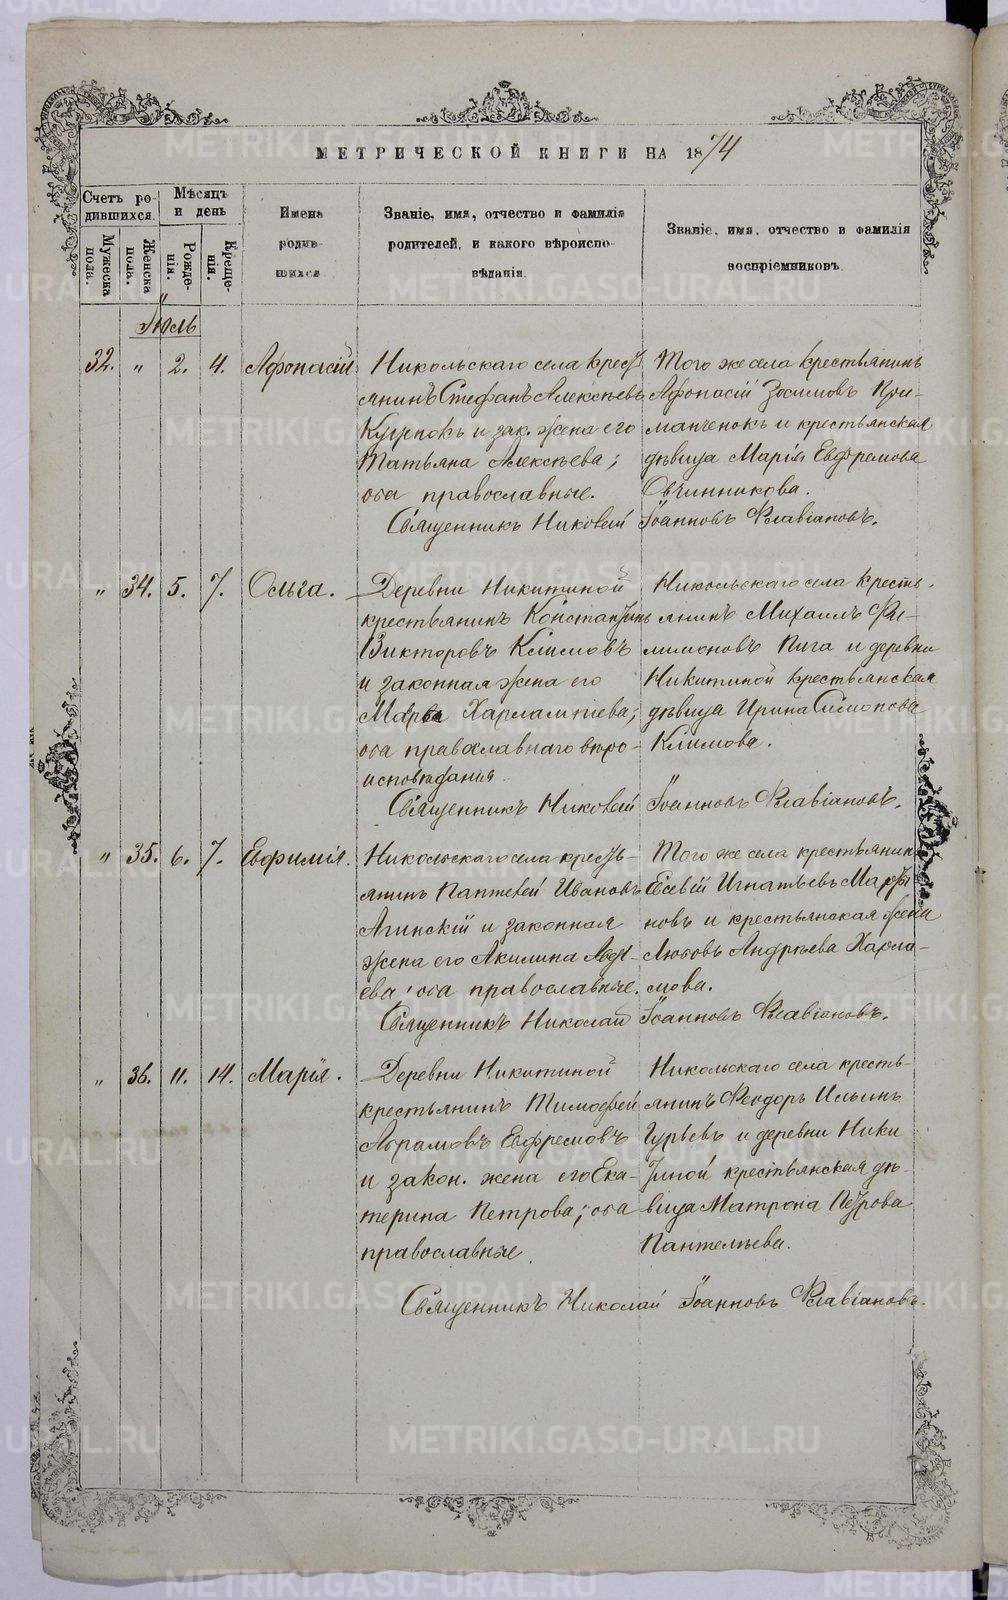 МЕТРИЧЕСКОЙ КНИГИ НА 1874
Счетъ родившихся.
Мѣсяцъ и день
Имена родившихся
Званіе, имя, отчество и фамилія родителей, и какого вѣроисповѣданія.
Званіе, имя, отчество и фамилія воспріемниковъ.
Мужеска пола.
Женска пола.
Рожденія.
Крещенія.
Іюль
32. " 2. 4. Афонасій
Никольскаго села крест
янинъ Стефанъ Алексѣевъ
и зак. жена его
Татьяна Алексѣева;
оба православные.
Того же села крестьянинъ
Афонасій Зосимовъ При-
манченокъ и крестьянская
дѣвица Марія Евфремова
Овчинникова.
Священникъ Николай Іоанновъ Флавіановъ.
" 34. 5. 7. Ольга.
Деревни Никитиной
крестьянинъ Константинъ
Викторовъ Климовъ
и законная жена его
Марѳа Харлампіева;
оба православнаго вѣро-
исповѣданія
Никольскаго села кресть-
янинъ Михаилъ Фи-
лимоновъ Пига и деревни
Никитиной крестьянская
дѣвица Ирина Симонова
Климова.
Священникъ Николай Іоанновъ Флавіановъ.
" 35. 6. 7. Евфимія.
Никольскаго села кресть-
янинъ Пантелей Ивановъ
Агинскій и законная
жена его Акилина
ева; оба православные.
Того же села крестьянинъ
Евсевій Игнатьевъ Марты
новъ и крестьянская жена
Любовь Андреева Харла-
мова.
Священникъ Николай Іоанновъ Флавіановъ.
" 36. 11. 14. Марія.
Деревни Никитиной
крестьянинъ Тимофей
Абрамовъ Евфремовъ
и закон. жена его Ека-
терина Петрова; оба
православные
Никольскаго села кресть-
янинъ Феодоръ Ильинъ
Гурьевъ и деревни Ники
тиной крестьянская дѣ-
вица Матрона Петрова
Пантелѣева.
Священникъ Николай Іоанновъ Флавіановъ.
METRIKI.GASO-URAL.RU